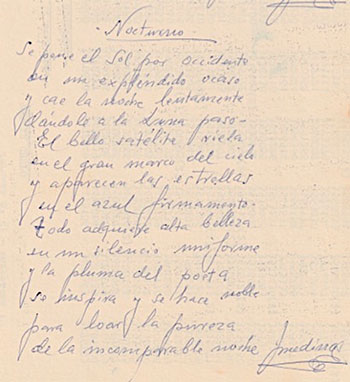 -Nocturno
Se pone el Sol por occidente
en un expléndido ocaso
y cae la noche lentamente
dándole a la Luna paso-
El bello satélite riela
en el gran marco del cielo
y aparecen las estrellas
en el azul firmamento-
Todo adquiere alta belleza
en un silencio uniforme
y la pluma del poeta
se inspira y se hace noble
para loar la pureza
de la incomparable noche Jmedina